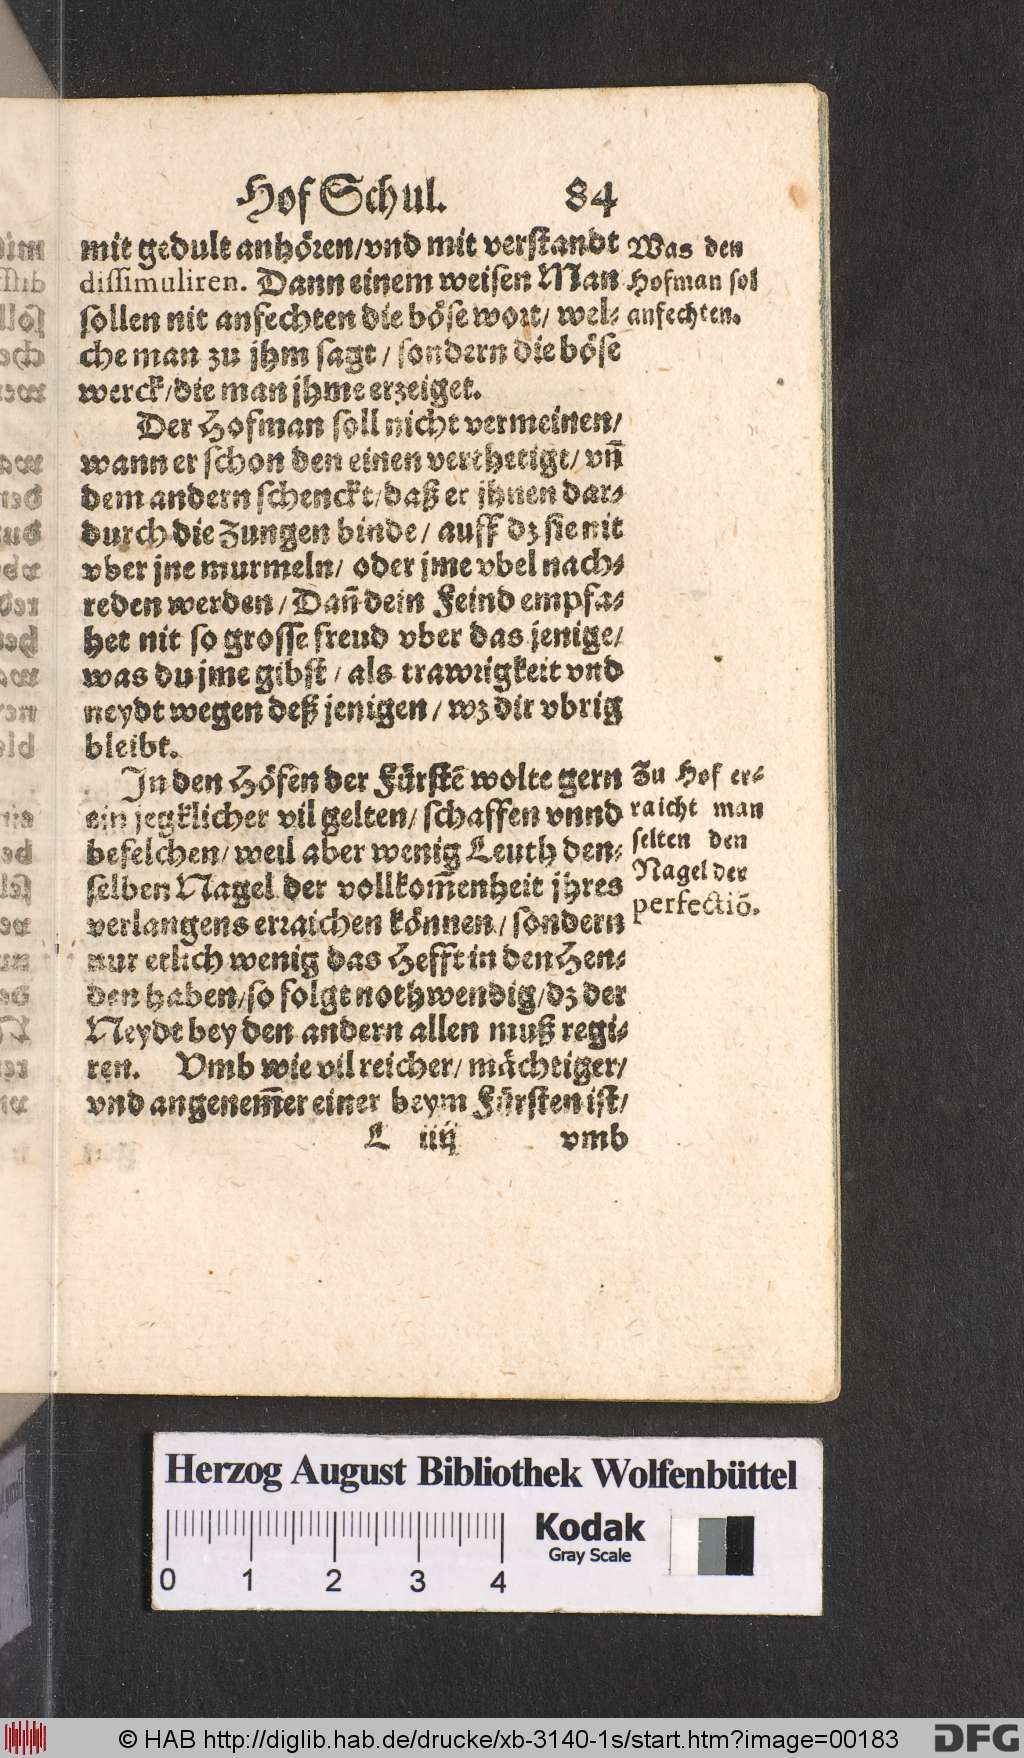 Hof Schul. 84
mit gedult anhören/vnd mit verstandt
dissimuliren. Dann einem weisen Man
sollen nit anfechten die böse wort/ wel-
che man zu jhm sagt / sondern die böse
werck/die man jhme erzeiget.
Was den
Hofman sol
anfechten.
Der Hofman soll nicht vermeinen/
wann er schon den einen verthetigt/ vñ
dem andern schenckt/daß er jhnen dar-
durch die Zungen binde / auff dz sie nit
vber jne murmeln/ oder jme vbel nach-
reden werden / Dañ dein Feind empfa-
het nit so grosse freud vber das jenige/
was du jme gibst / als trawrigkeit vnd
neydt wegen deß jenigen / wz dir vbrig
bleibt.
In den Höfen der Fürstē wolte gern
ein jegklicher vil gelten/ schaffen vnnd
befelchen/ weil aber wenig Leuth den-
selben Nagel der vollkom̃enheit jhres
verlangens erraichen können / sondern
nur etlich wenig das Hefft in den Hen-
den haben/so folgt nothwendig/dz der
Neydt bey den andern allen muß regi-
ren. Vmb wie vil reicher/ mächtiger/
vnd angenem̃er einer beym Fürsten ist/
Zu Hof er-
raicht man
selten den
Nagel der
perfectiõ.
L iiij vmb
Herzog August Bibliothek Wolfenbüttel
0 1 2 3 4
Kodak
Gray Scale
© HAB http://diglib.hab.de/drucke/xb-3140-1s/start.htm?image=00183
DFG